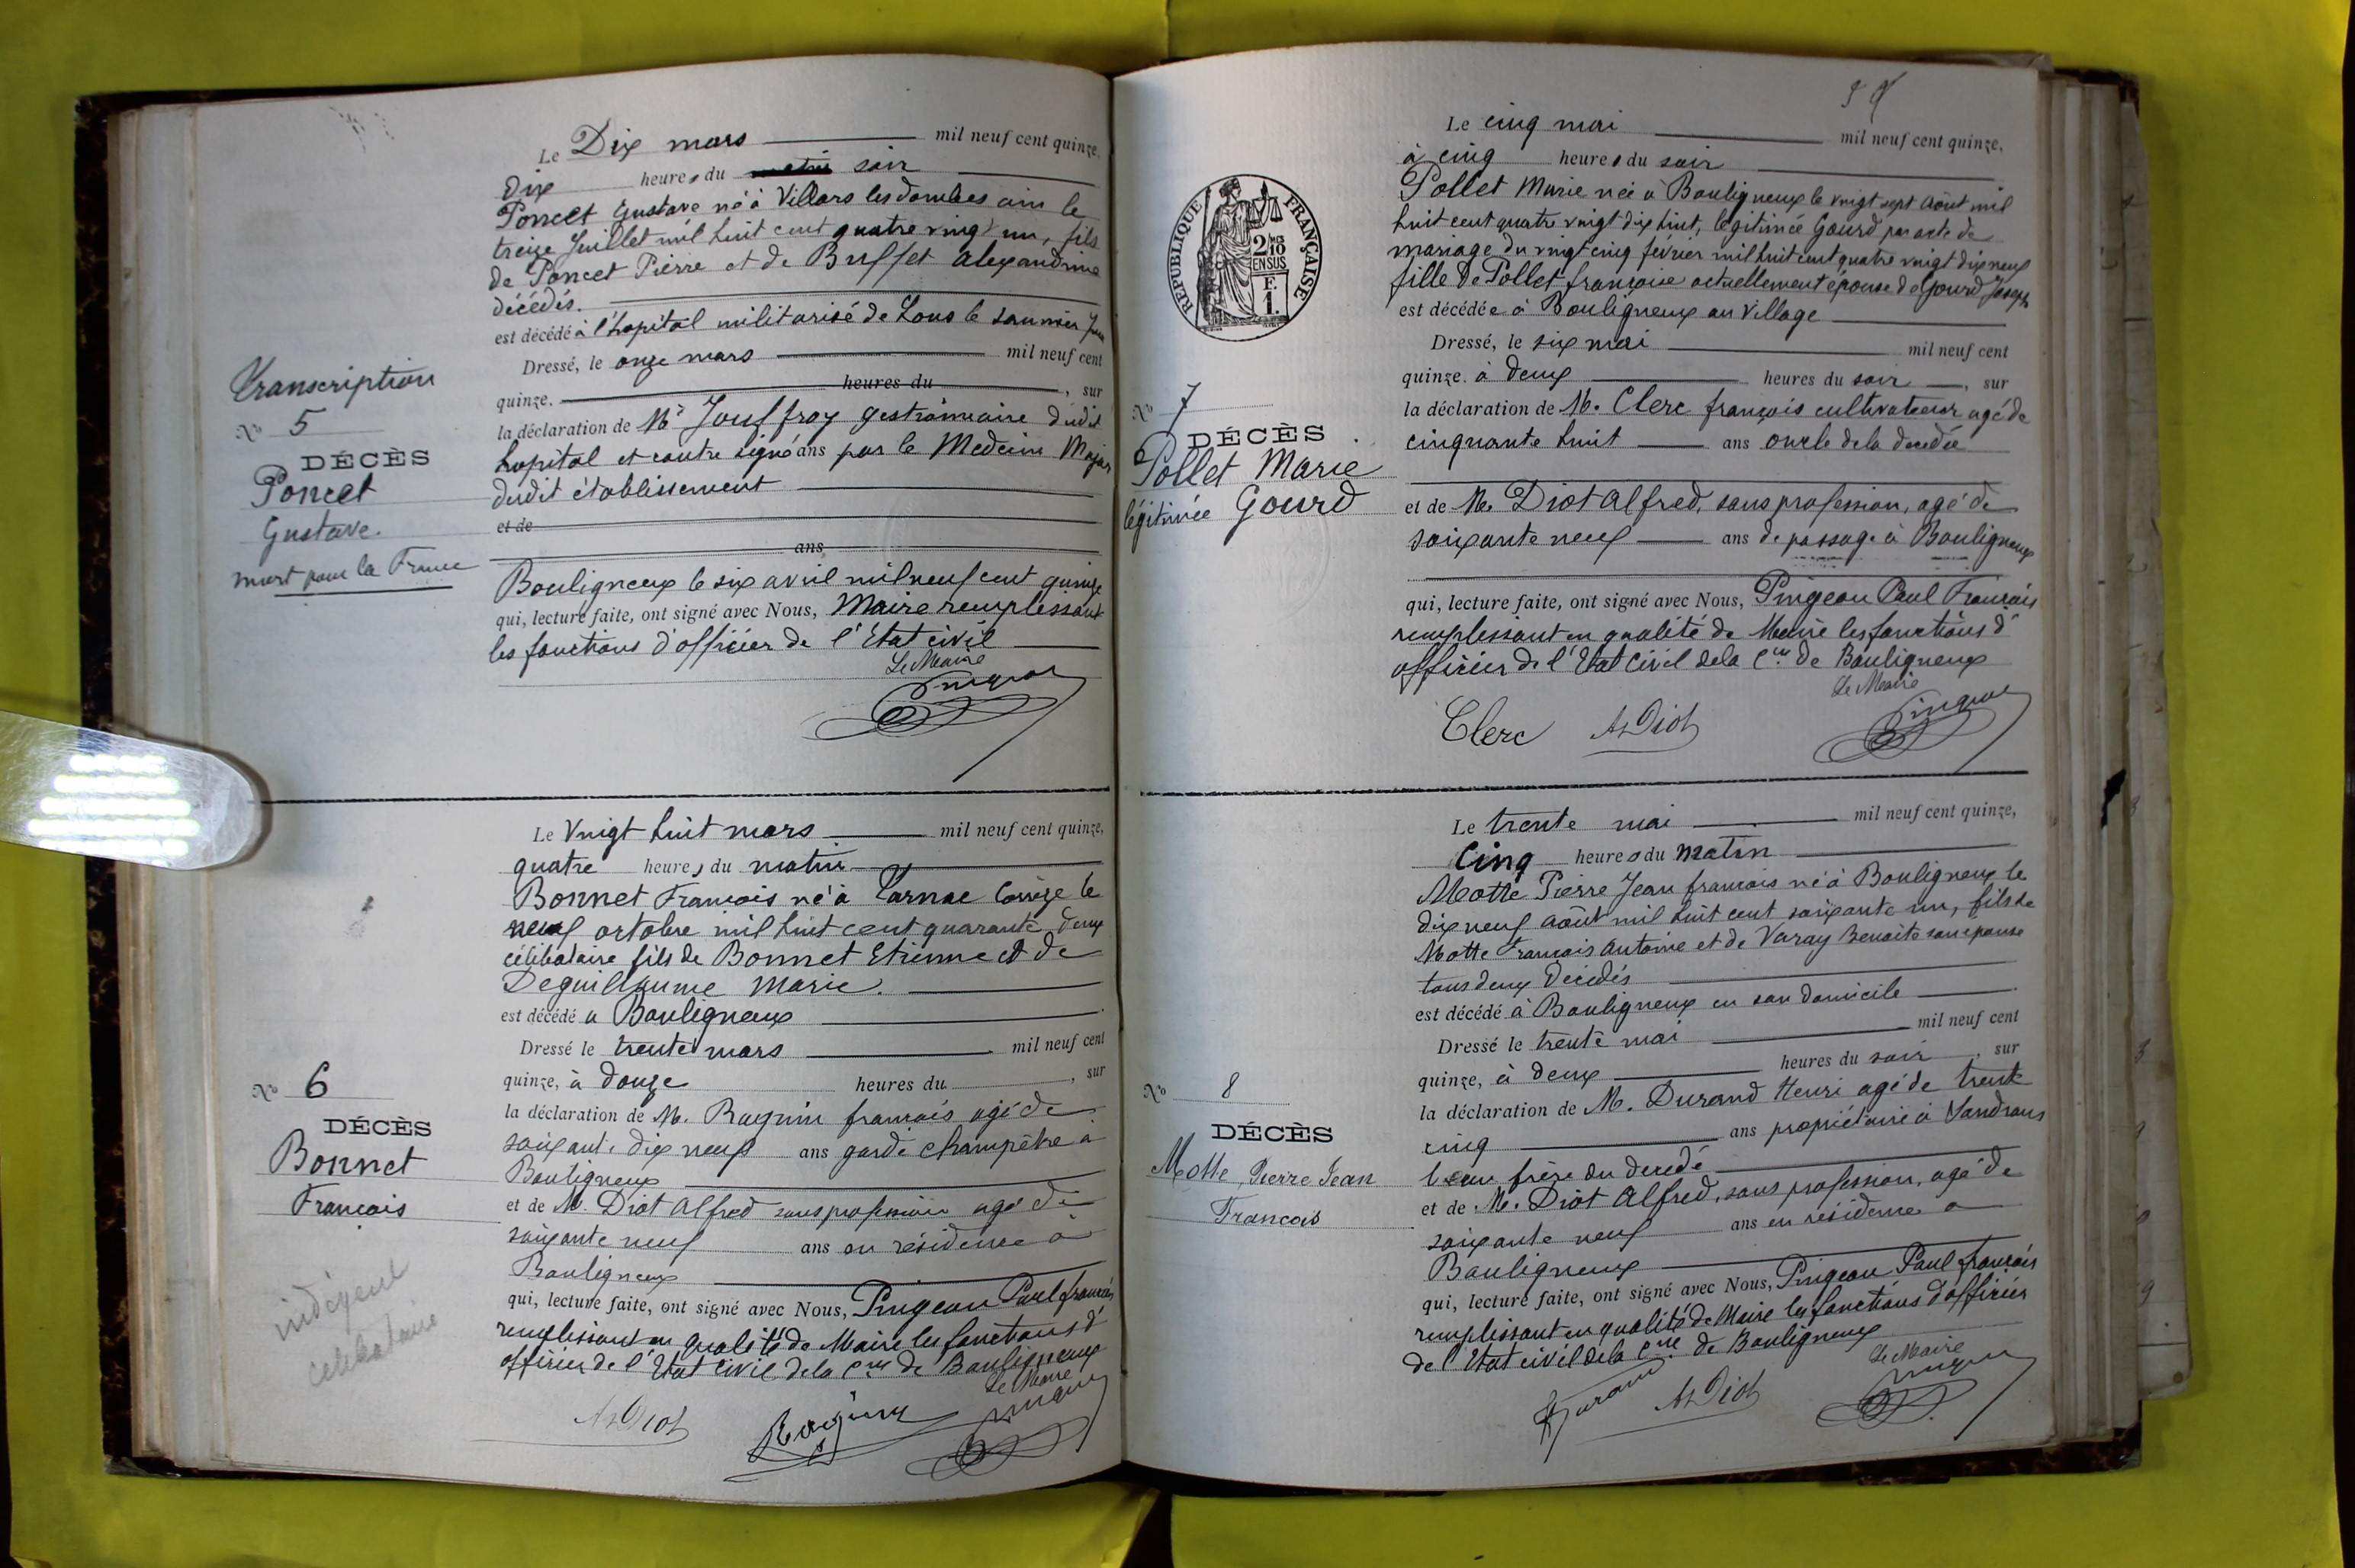 Le Dix mars mil neuf cent quinze,
dix heures du matin soir
Poncet Gustave né à Villars les dombes ain le
treize Juillet mil huit cent quatre vingt un, fils
de Poncet Pierre et de Buffet alexandrine
décédés.
est décédé à l'hopital militarisé de Lons le saunier Jura
Dressé, le onze mars mil neuf cent
quinze. heures du , sur
la déclaration de Mr Jouffroy gestionnaire dudit
hopital et contre signé ans par le Medecin Major
dudit établissement
et de
ans
Bouligneux le six avril mil neuf cent quinze
qui, lecture faite, ont signé avec Nous, Maire remplissant
les fonctions d'officier de l'Etat civil
Le Maire
Pingeon
Transcription
No 5
DÉCÈS
Poncet
Gustave.
mort pour la France
Le Vingt huit mars mil neuf cent quinze,
quatre heures du matin
Bonnet Francois né à Tarnac Corrèze le
neuf octobre mil huit cent quarante deux
célibataire fils de Bonnet Etienne et de
Deguillaume Marie.
est décédé a Bouligneux
Dressé le trente mars mil neuf cent
quinze, à douze heures du , sur
la déclaration de M. Raquin francois agé de
soixante dix neuf ans garde champêtre à
Bouligneux
et de M. Diot Alfred sans profession agé de
soixante neuf ans en résidence à
Bouligneux
qui, lecture faite, ont signé avec Nous, Pingeon Paul francois
remplissant en qualité de Maire les fonctions d'
officier de l'Etat civil de la Cne de Bouligneux
Le Maire
A Diot Raquin Pingeon
No 6
DÉCÈS
Bonnet
Francois
indigent
celibataire
Le cinq mai mil neuf cent quinze,
à cinq heures du soir
Pollet Marie née à Bouligneux le vingt sept Août mil
huit cent quatre vingt dix huit, légitimée Gourd par acte de
mariage du vingt cinq février mil huit cent quatre vingt dix neuf
fille de Pollet françoise actuellement épouse de Gourd Joseph
est décédée à Bouligneux au Village
Dressé, le six mai mil neuf cent
quinze. à deux heures du soir , sur
la déclaration de M. Clerc françois cultivateur agé de
cinquante huit ans oncle de la décédée
et de M. Diot Alfred, sans profession, agé de
soixante neuf ans de passage à Bouligneux
qui, lecture faite, ont signé avec Nous, Pingeon Paul Francois
remplissant en qualité de Maire les fonctions d'
officier de l'Etat Civil de la Cne de Bouligneux
Le Maire
Clerc A Diot Pingeon
RÉPUBLIQUE FRANÇAISE
2/10
EN SUS
F.
1.
No 7
DÉCÈS
Pollet Marie
légitimée Gourd
Le trente mai mil neuf cent quinze,
Cinq heures du matin
Motte Pierre Jean francois né à Bouligneux le
dix neuf août mil huit cent soixante un, fils de
Motte Francois Antoine et de Varay Benoite son épouse
tous deux décédés
est décédé à Bouligneux en son domicile
Dressé le trente mai mil neuf cent
quinze, à deux heures du soir , sur
la déclaration de M. Durand Henri agé de trente
cinq ans propriétaire à Sandrans
beau frère du décédé
et de M. Diot Alfred, sans profession, agé de
soixante neuf ans en résidence a
Bouligneux
qui, lecture faite, ont signé avec Nous, Pingeon Paul francois
remplissant en qualité de Maire les fonctions d'officier
de l'Etat civil de la Cne de Bouligneux
Le Maire
H Durand A Diot Pingeon
No 8
DÉCÈS
Motte Pierre Jean
Francois